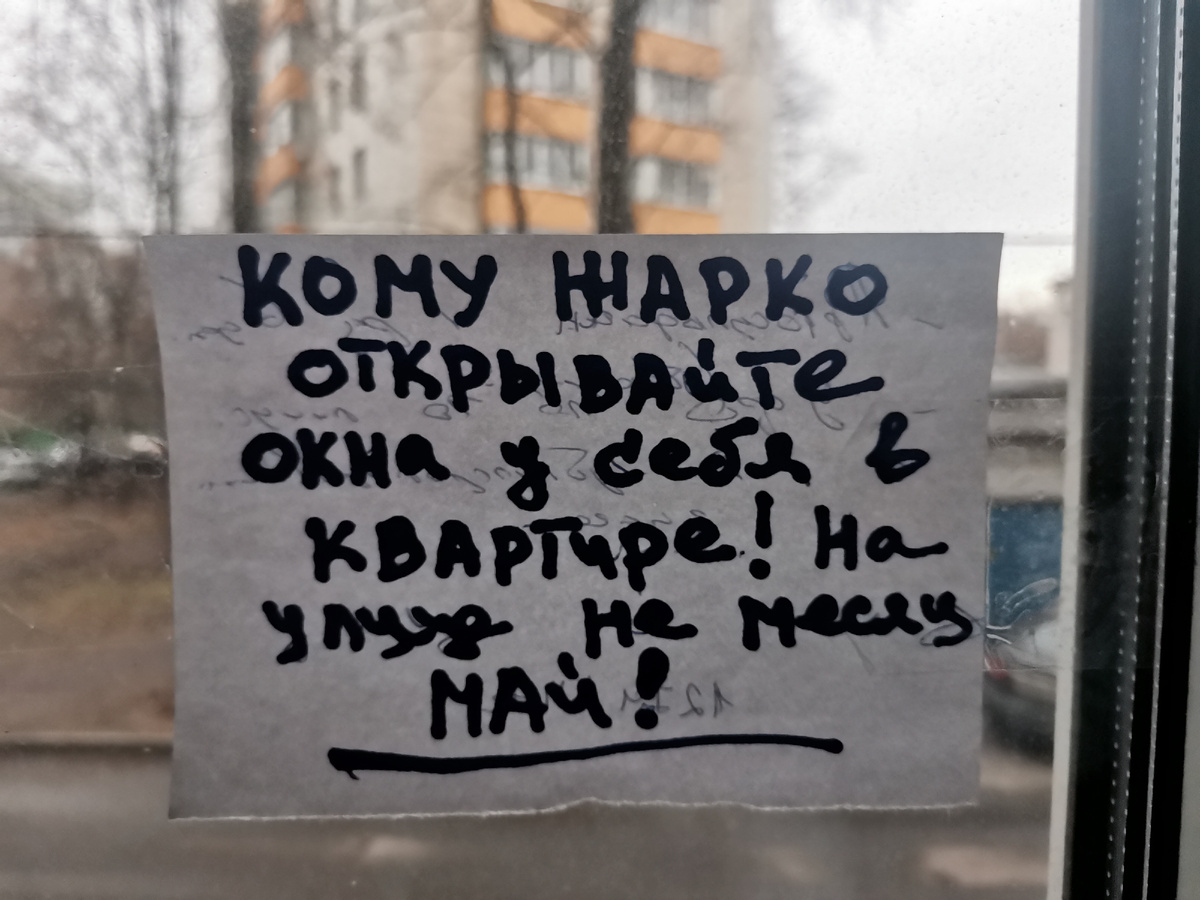 КОМУ ЖАРКО
ОТКРЫВАЙТЕ
ОКНА У СЕБЯ В
КВАРТИРЕ! НА
УЛИЦЕ НЕ МЕСЯЦ
МАЙ!